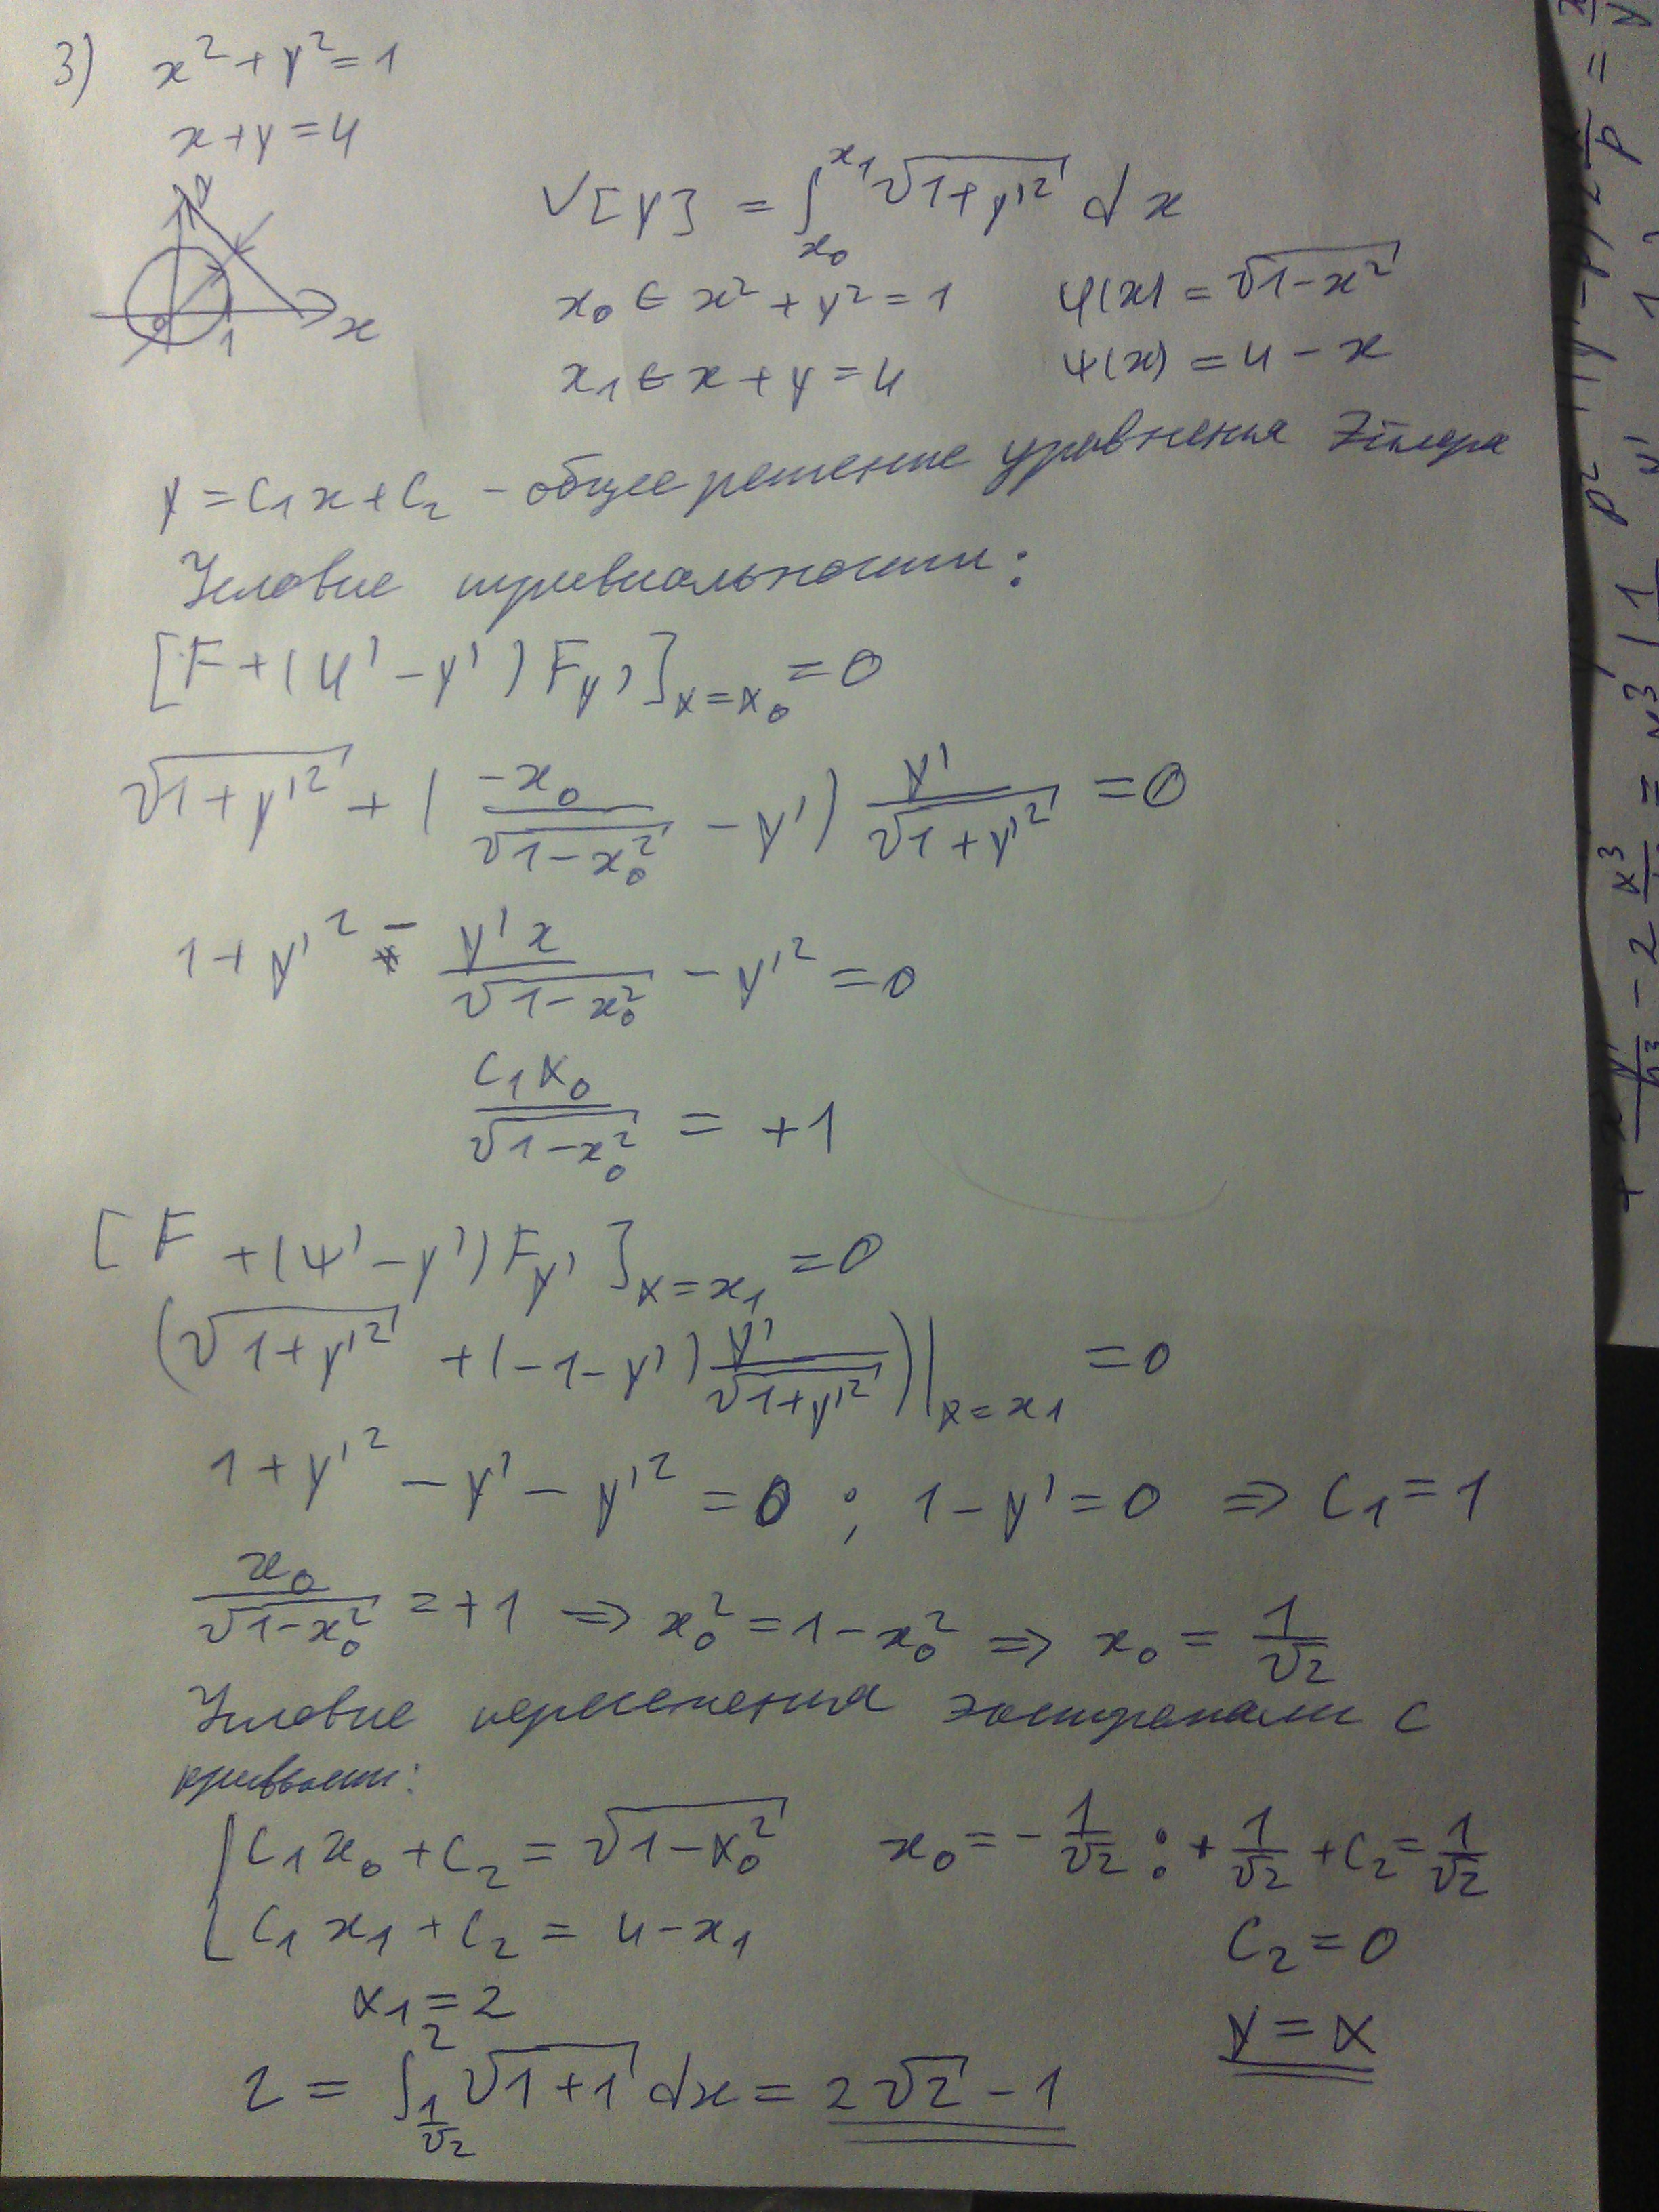 3) x² + y² = 1
x + y = 4
V[y] = ∫_{x₀}^{x₁} √(1+y'²) dx
x₀ ∈ x² + y² = 1 φ(x) = √(1-x²)
x₁ ∈ x + y = 4 ψ(x) = 4 - x
x
0 1
y = C₁x + C₂ - общее решение уравнения Эйлера
Условие тривиальности:
[F + (φ' - y') F_y']_{x=x₀} = 0
√(1+y'²) + (-x₀/√(1-x₀²) - y') y'/√(1+y'²) = 0
1 + y'² - y'x/√(1-x₀²) - y'² = 0
C₁x₀/√(1-x₀²) = +1
[F + (ψ' - y') F_y']_{x=x₁} = 0
(√(1+y'²) + (-1-y') y'/√(1+y'²))|_{x=x₁} = 0
1 + y'² - y' - y'² = 0 ; 1 - y' = 0 ⇒ C₁ = 1
x₀/√(1-x₀²) = +1 ⇒ x₀² = 1 - x₀² ⇒ x₀ = 1/√2
Условие пересечения экстремали с
кривыми:
{ C₁x₀ + C₂ = √(1-x₀²) x₀ = -1/√2 : +1/√2 + C₂ = 1/√2
C₁x₁ + C₂ = 4 - x₁ C₂ = 0
x₁ = 2 y = x
2 = ∫_{1/√2}^{2} √(1+1) dx = 2√2 - 1